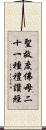 聖救度佛母二
十一種禮讚經